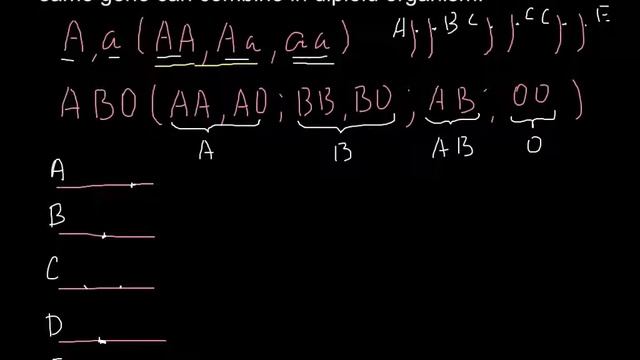 same gene can combine in diploid organism.
A, a ( AA, Aa, aa )
A B C C C E
ABO ( AA, AO ; BB, BO ; AB ; OO )
A B AB O
A
B
C
D